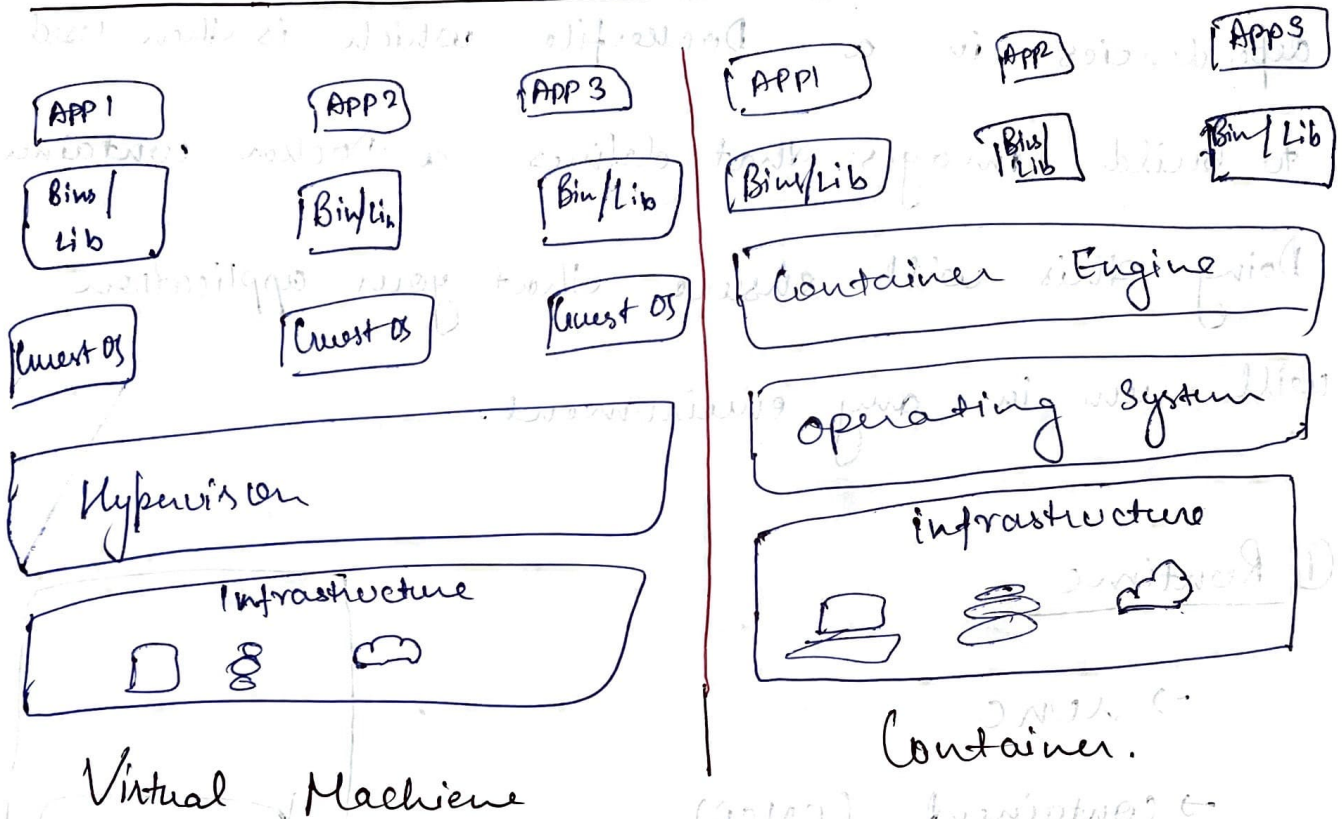 APP 1
APP 2
APP 3
Bins/
Lib
Bin/Lib
Bin/Lib
Guest OS
Guest OS
Guest OS
Hypervisor
Infrastructure
Virtual Machiene
APP1
APP2
APP3
Bins/Lib
Bins/
Lib
Bin/Lib
Container Engine
Operating System
infrastructure
Container.